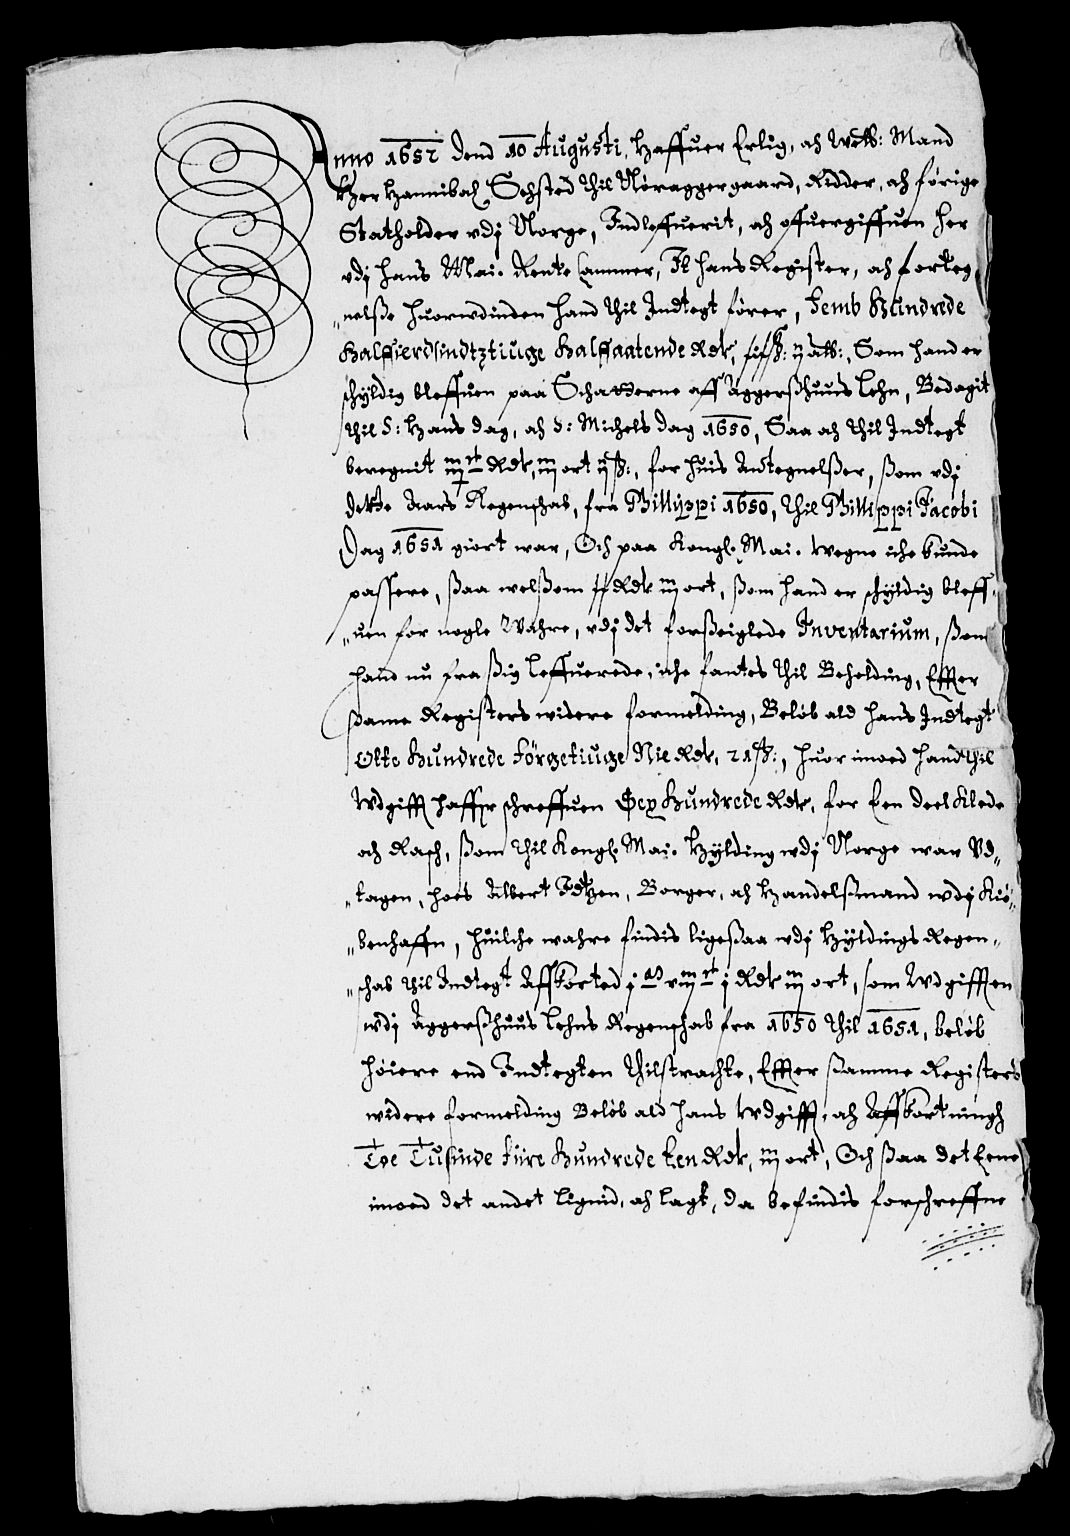 Anno 1652 dend 10 Augusti, Haffuer Erlig, och Welb: Mand
Her Hannibal Sehsted thil Nøraggergaard, Ridder, och förige
Statholder vdj Norge, Indleffuerit, och offuergiffuen her
vdj hans Maj. Rente Cammer, It hans Register, och forteg„
„nelße huorwdinden hand thil Indtegt fører, Femb Hundrede
Halffierdsindtztiuge Halffaatende Rdr, ß: alb:, Som hand er
schyldig bleffuen paa Schatterne aff Aggerßhuus Lehn, Bedagit
thil S: Hans dag, och S: Michels dag 1650, Saa och thil Indtegt
beregnit Rdr, iij ort ß:, for huis Antegnelßer, ßom vdj
dette Aars Regenschab, fra Phillippi 1650, thil Phillippi Jacobi
Dag 1651 giort war, Och paa Kongl. Maj. wegne iche kunde
passere, ßaa welßom Rdr iij ort, ßom hand er schyldig bleff„
„uen for nogle Wahre, vdj det forßeiglede Inventarium, ßom
hand nu fra ßig leffuerede, iche fantes thil Beholding, Effter
ßame Registers widere formelding, Beløb ald hans Indtegt
Otte Hundrede Förgetiuge Nie Rdr, 21 ß:, huor imoed hand thil
Wdgifft haffr schreffuen Sex Hundrede Rdr, for Een deel Klede
och Rasch, ßom thil Kongl. Maj. Hylding wdj Norge war Vd„
„tagen, hoes Albert Itzen, Borger, och Handelßmand wdj Kiø„
„benhaffn, huilche wahre findis ligeßaa wdj Hyldings Regen„
„schab thil Indtegt Affkorted j m viij c j Rdr iij ort, som Wdgifften
wdj Aggerßhuus Lehns Regenschab fra 1650 thil 1651, beløb
høiere end Indtegten thilstrachte, Effter ßamme Registers
widere formelding Beløb ald hans Wdgifft, och Affkortningh
Toe Tusinde Fiire Hundrede Een Rdr, iij ort, Och ßaa det Eene
imoed det andet lignid, och lagt, da befindis forschreffne